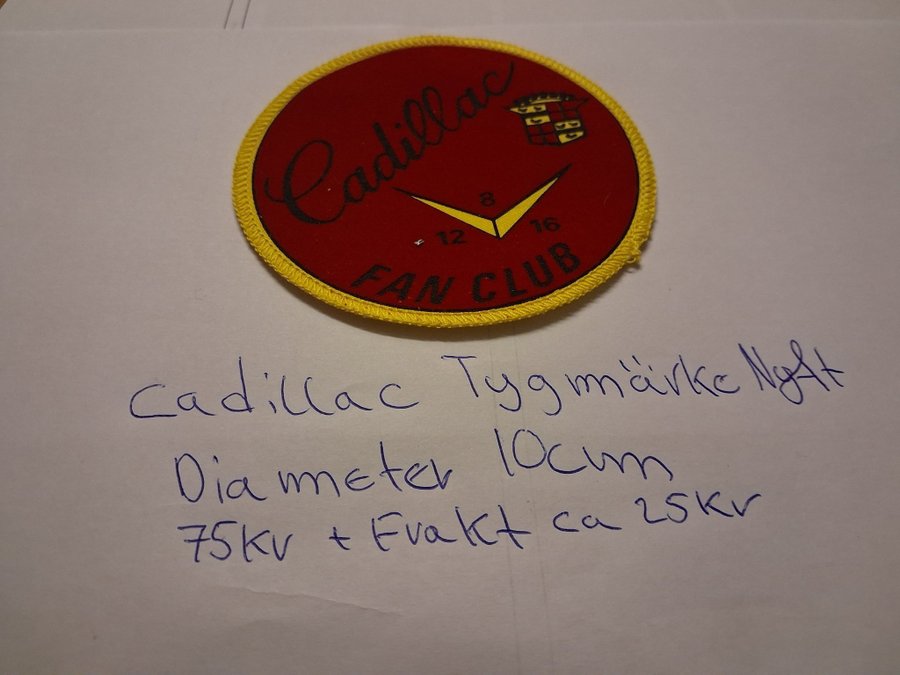 Cadillac
8
12 16
FAN CLUB
Cadillac Tygmärke Nytt
Diameter 10cm
75Kr + Frakt ca 25Kr